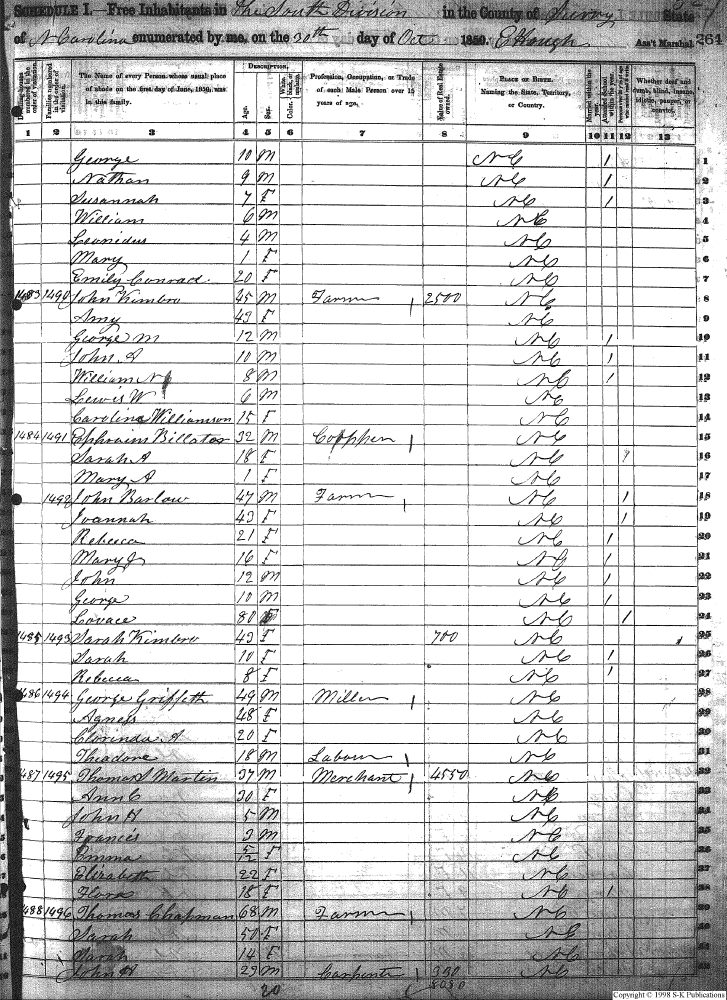 SCHEDULE I. Free Inhabitants in The South Division in the County of Surry State
of N Carolina enumerated by me, on the 20th day of Oct 1850. E Hough Ass't Marshal. 264
order of visitation.
Families numbered in the order of visitation.
The Name of every Person whose usual place of abode on the first day of June, 1850, was in this family.
Description.
Age.
Sex.
Color.
Profession, Occupation, or Trade of each Male Person over 15 years of age.
Value of Real Estate owned.
Place of Birth. Naming the State, Territory, or Country.
Married within the year.
Whether deaf and dumb, blind, insane, idiotic, pauper, or convict.
1 2 3 4 5 6 7 8 9 10 11 12 13
George 10 M NC / 1
Nathan 9 M NC / 2
Susannah 7 F NC / 3
William 6 M NC 4
Leonidus 4 M NC 5
Mary 1 F NC 6
Emily Conrad 20 F NC 7
1483 1490 John Kimbro 45 M Farmer 2500 NC 8
Amy 43 F NC 9
George M 12 M NC / 10
John 10 M NC / 11
William N 8 M NC / 12
Lewis W 6 M NC 13
Caroline Williamson 15 F NC 14
1484 1491 Ephraim Billator 32 M NC 15
Sarah A 18 F NC 16
Mary A 1 F NC 17
1492 John Barlow 47 M Farmer NC / 18
Joannah 43 F NC / 19
Rebecca 21 F NC / 20
Mary J 16 F NC / 21
John 12 M NC / 22
George 10 M NC / 23
Lovace 80 NC / 24
1485 1493 Sarah Kimbro 43 F 700 NC 25
Sarah 10 F NC / 26
Rebecca 8 F NC / 27
1486 1494 George Griffeth 49 M Miller NC 28
Agness 48 F NC 29
Clorinda 20 F NC 30
Theadore 18 M Labour NC 31
1487 1495 Thomas S Martin 37 M Merchant 4550 NC 32
Ann C 30 F NC
John H 5 M NC
Francis 3 M NC
Emma 5/12 F NC
Elizabeth 22 F NC
Flora 18 F NC /
1488 1496 Thomas Chapman 68 M Farmer NC
Sarah 50 F NC
Sarah 14 F NC
John H 29 M Carpenter NC
20
Copyright © 1998 S-K Publications